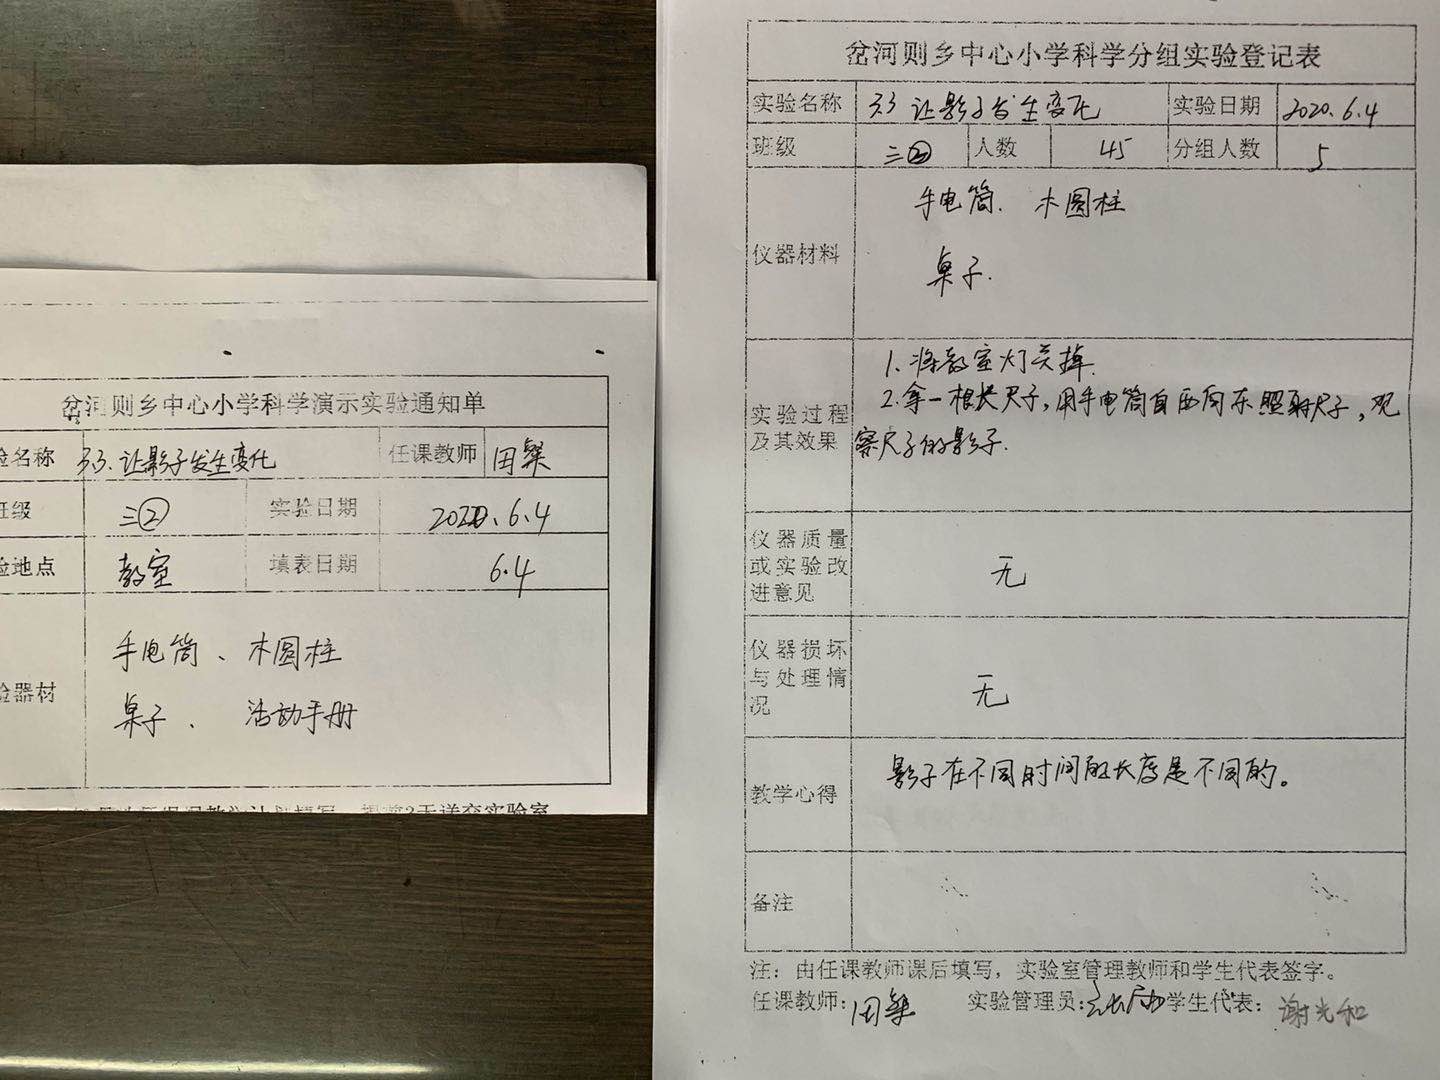 岔河则乡中心小学科学演示实验通知单
验名称 3.3.让影子发生变化 任课教师 田粲
班级 三② 实验日期 2020.6.4
验地点 教室 填表日期 6.4
验器材 手电筒、木圆柱
桌子、活动手册
岔河则乡中心小学科学分组实验登记表
实验名称 3.3 让影子发生变化 实验日期 2020.6.4
班级 三② 人数 45 分组人数 5
仪器材料 手电筒.木圆柱
桌子.
实验过程及其效果 1.将教室灯关掉.
2.拿一根长尺子,用手电筒自西向东照射尺子,观
察尺子的影子.
仪器质量或实验改进意见 无
仪器损坏与处理情况 无
教学心得 影子在不同时间的长度是不同的。
备注
注：由任课教师课后填写，实验室管理教师和学生代表签字。
任课教师：田粲 实验管理员： 学生代表：谢光和